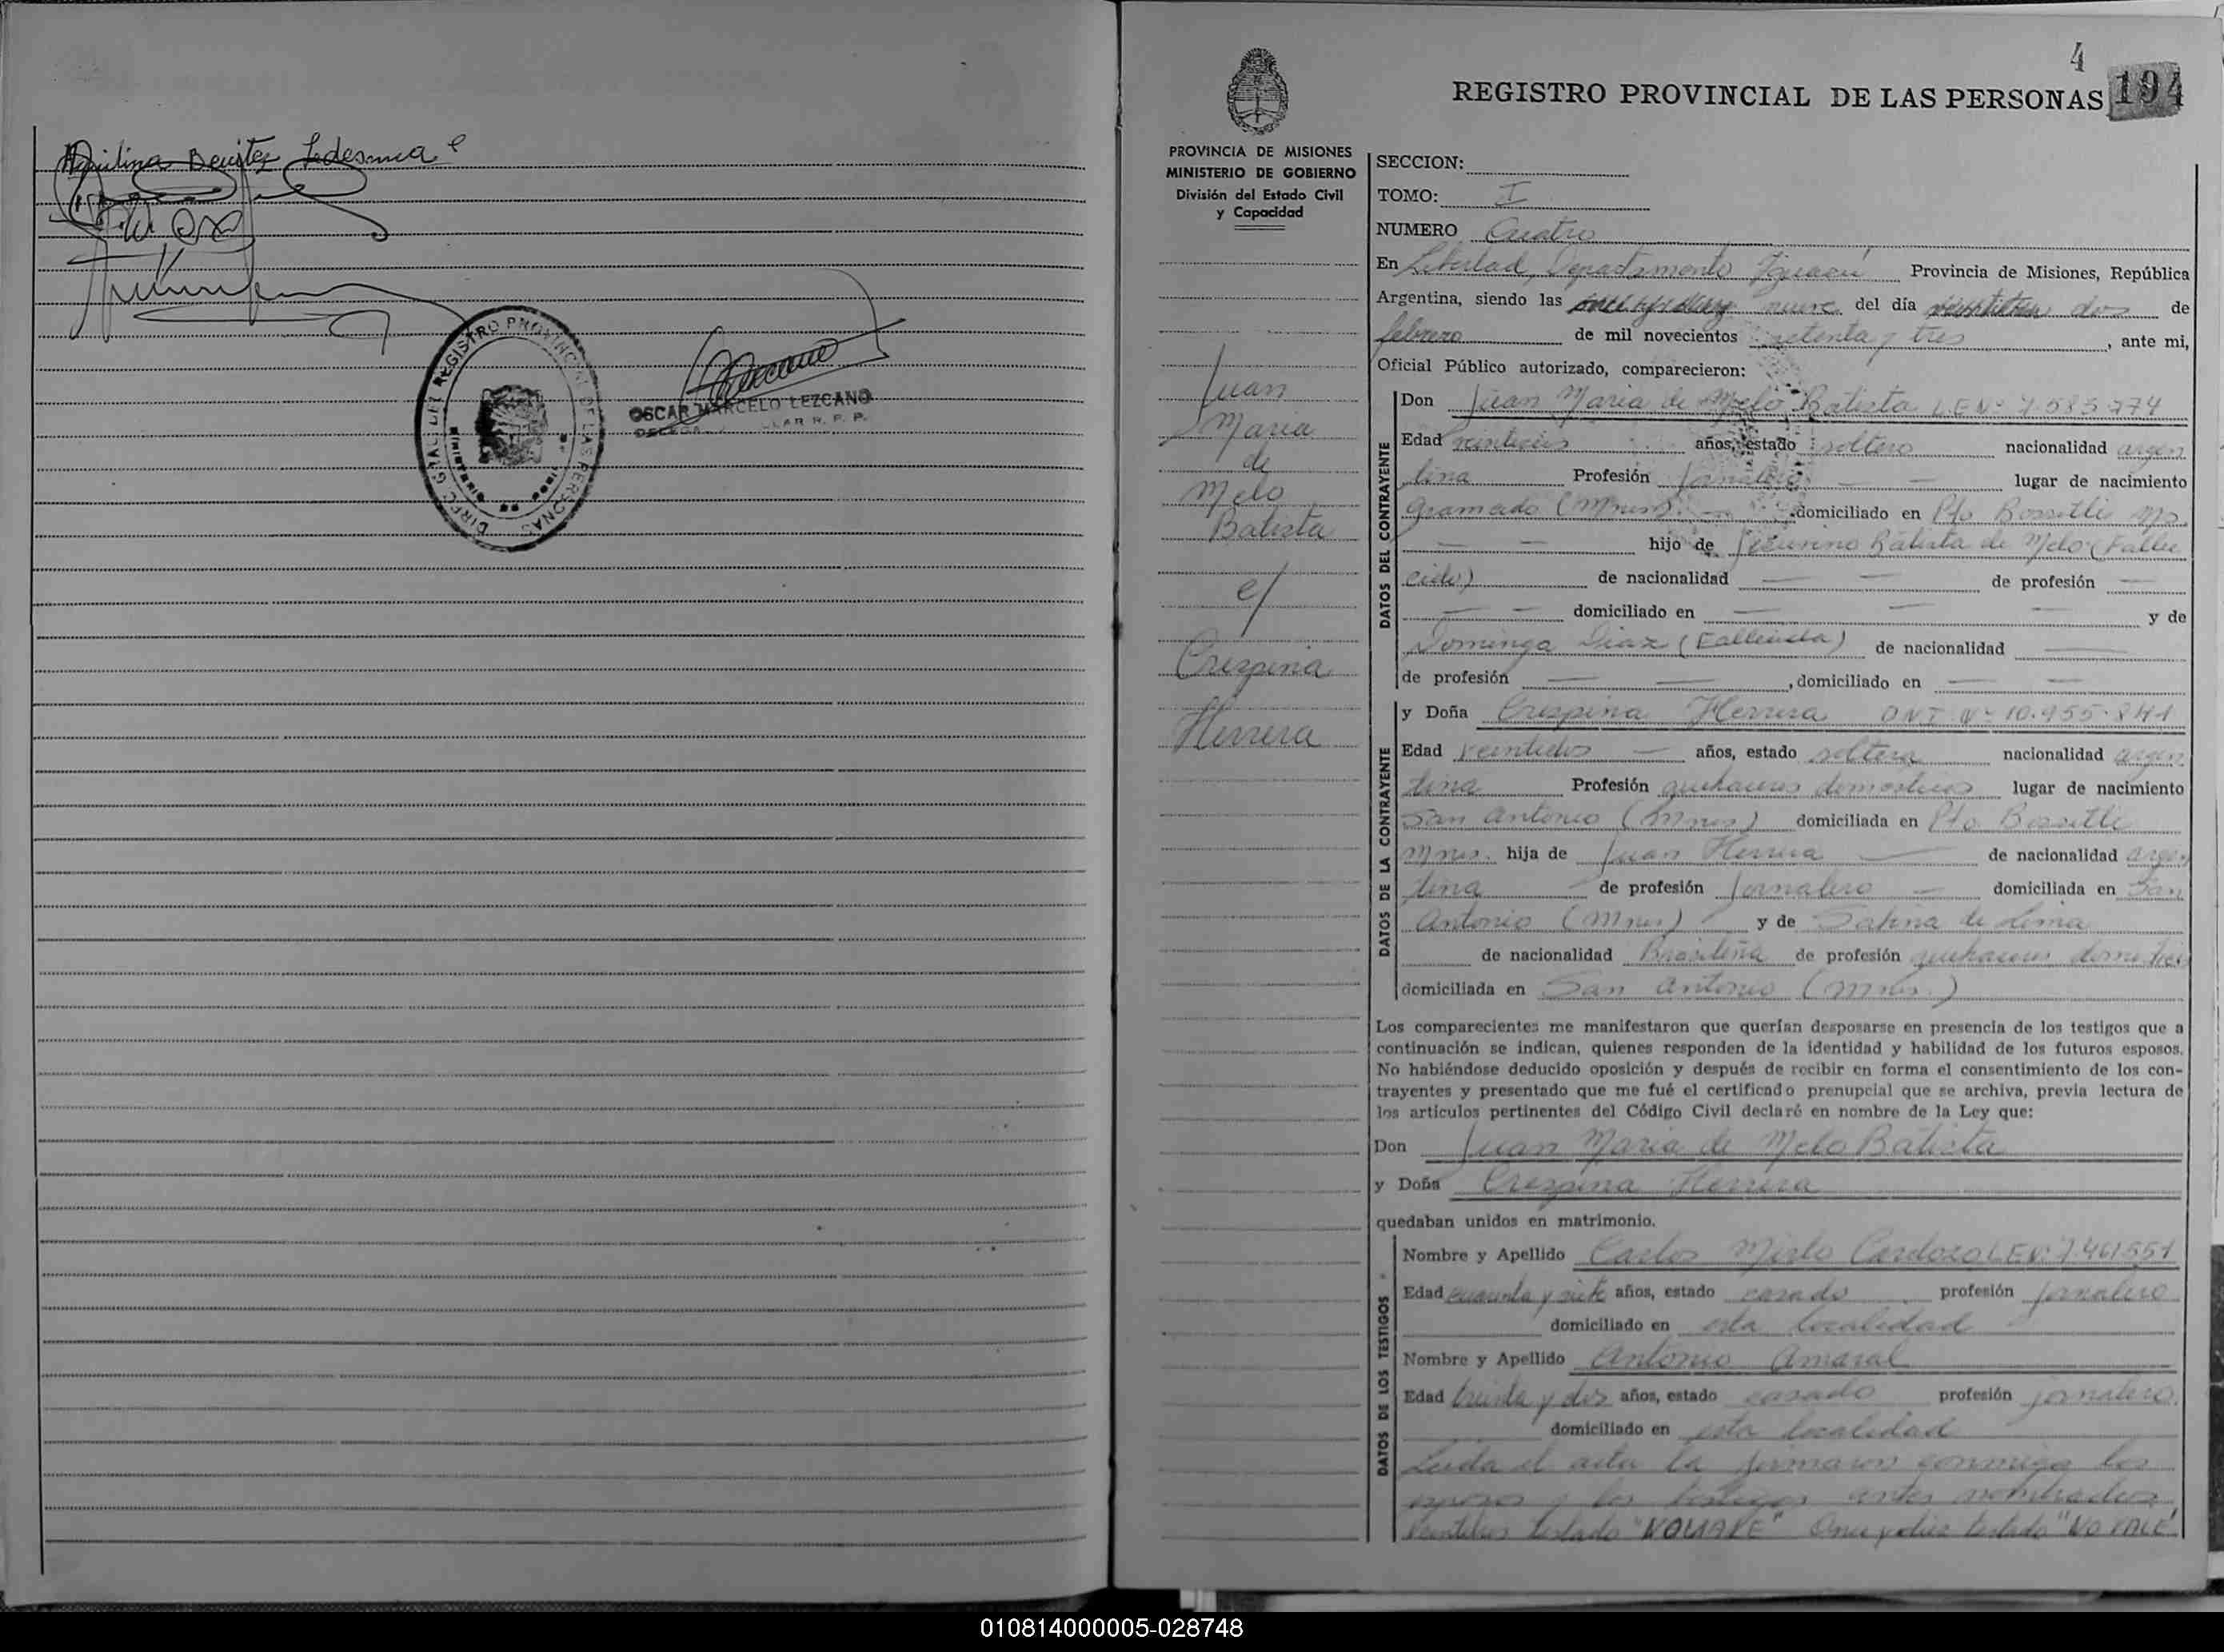 Aquilina Benitez Ledesma
DIREC. GRAL. DEL REGISTRO PROVINCIAL DE LAS PERSONAS
OSCAR MARCELO LEZCANO
4
REGISTRO PROVINCIAL DE LAS PERSONAS 194
PROVINCIA DE MISIONES
MINISTERIO DE GOBIERNO
División del Estado Civil
y Capacidad
Juan
Maria
de
Melo
Batista
c/
Crezpina
Herrera
SECCION:
TOMO: I
NUMERO Cuatro
En Libertad, Departamento Iguazú Provincia de Misiones, República
Argentina, siendo las nueve del día dos de
febrero de mil novecientos setenta y tres, ante mi,
Oficial Público autorizado, comparecieron:
DATOS DEL CONTRAYENTE
Don Juan Maria de Melo Batista L.E.Nº 7.583.774
Edad años, estado soltero nacionalidad argen
tina Profesión Jornalero lugar de nacimiento
Gramado (Mnes). domiciliado en Pto Bossetti
hijo de Batista de Melo (Falle
cido) de nacionalidad de profesión
domiciliado en y de
Dominga Diaz (Fallecida) de nacionalidad
de profesión , domiciliado en
DATOS DE LA CONTRAYENTE
y Doña Crezpina Herrera D N I Nº 10.955.841
Edad veintidos años, estado soltera nacionalidad argen
tina Profesión quehaceres domesticos lugar de nacimiento
San Antonio (Mnes) domiciliada en Pto Bossetti
Mnes. hija de Juan Herrera de nacionalidad argen
tina de profesión Jornalero domiciliada en San
Antonio (Mnes) y de de Lima
de nacionalidad Brasileña de profesión quehaceres domestico
domiciliada en San Antonio (Mnes.)
Los comparecientes me manifestaron que querían desposarse en presencia de los testigos que a
continuación se indican, quienes responden de la identidad y habilidad de los futuros esposos.
No habiéndose deducido oposición y después de recibir en forma el consentimiento de los con-
trayentes y presentado que me fué el certificado prenupcial que se archiva, previa lectura de
los artículos pertinentes del Código Civil declaré en nombre de la Ley que:
Don Juan Maria de Melo Batista
y Doña Crezpina Herrera
quedaban unidos en matrimonio.
DATOS DE LOS TESTIGOS
Nombre y Apellido Carlos Mirlo Cardozo L.E.Nº 7.461.551
Edad cuarenta y siete años, estado casado profesión Jornalero
domiciliado en esta localidad
Nombre y Apellido Antonio Amaral
Edad treinta y dos años, estado casado profesión jornalero
domiciliado en esta localidad
Leida el acta la firmaron conmigo los
esposos y los testigos antes nombrados,
testado "NO VALE" Once y diez testado "NO VALE"
010814000005-028748